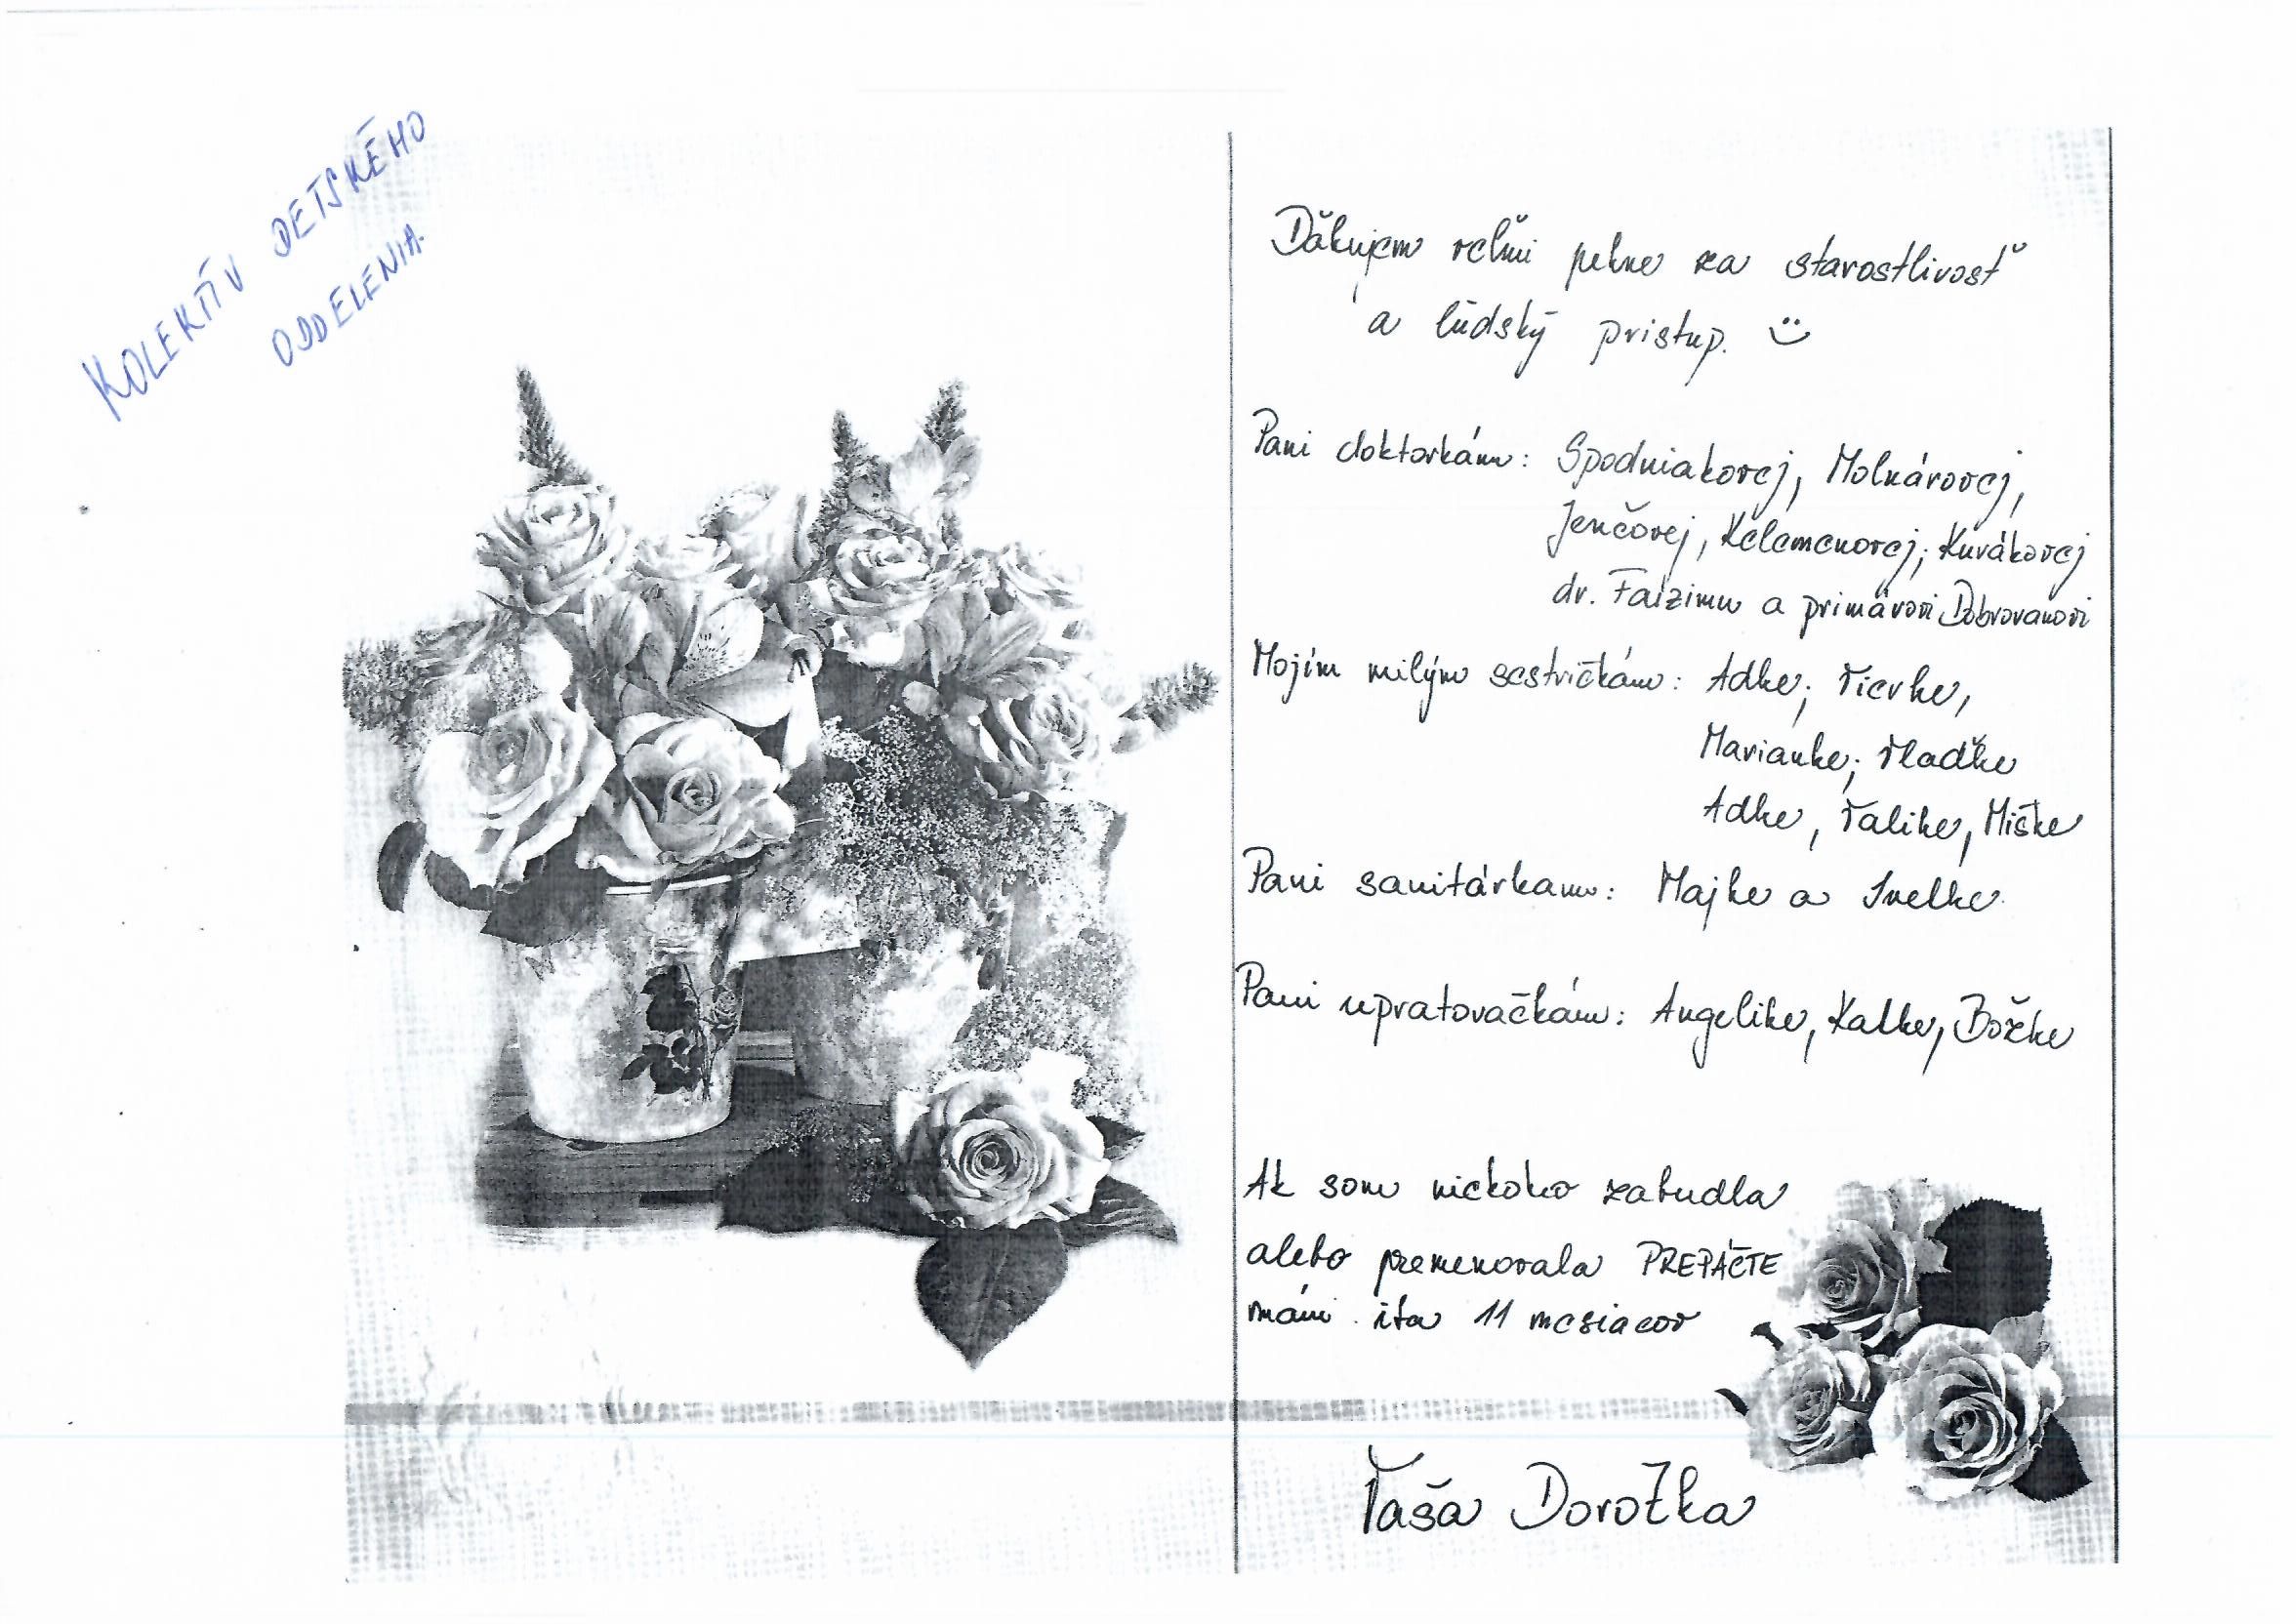 KOLEKTÍV DETSKÉHO
ODDELENIA
Ďakujem veľmi pekne za starostlivosť
a ľúdský pristup. :)
Pani doktorkám: Spodniakovej, Molnárovej,
Jenčovej, Kelemenovej, Kuvákovej
dr. Faizimu a primárovi Dobrovanovi
Mojím milým sestričkám: Adke, Vierke,
Marianke, Vlaďke
Adke, Valike, Miške
Pani sanitárkam: Majke a Ivetke
Pani upratovačkám: Angelike, Katke, Božke
Ak som niekoho zabudla
alebo premenovala PREPÁČTE
mám iba 11 mesiacov
Vaša Dorotka